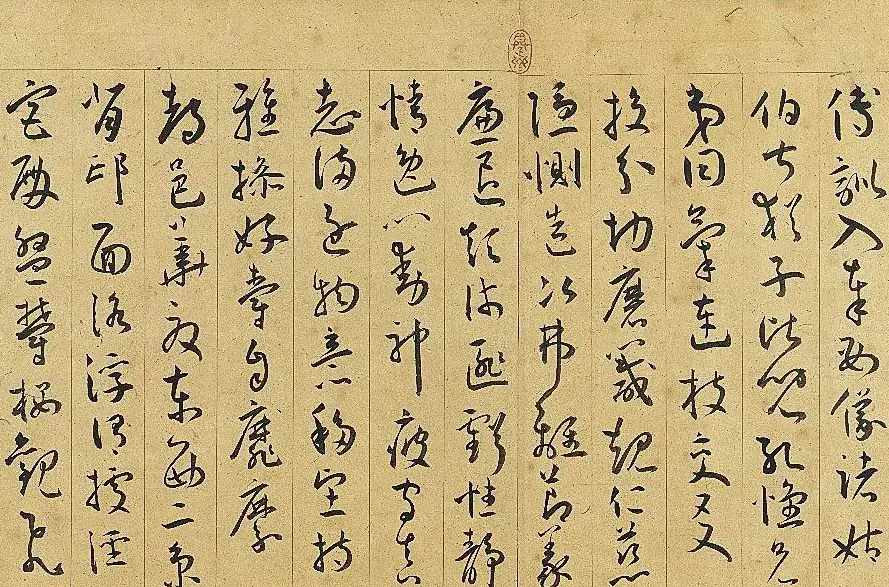 傅訓入奉母儀諸姑
伯叔猶子比兒孔懷兄
弟同氣連枝交友
投分切磨箴規仁慈
隱惻造次弗離節義
廉退顛沛匪虧性靜
情逸心動神疲守真
志滿逐物意移堅持
雅操好爵自縻
都邑華夏東西二京
背邙面洛浮渭據涇
宮殿盤鬱樓觀飛